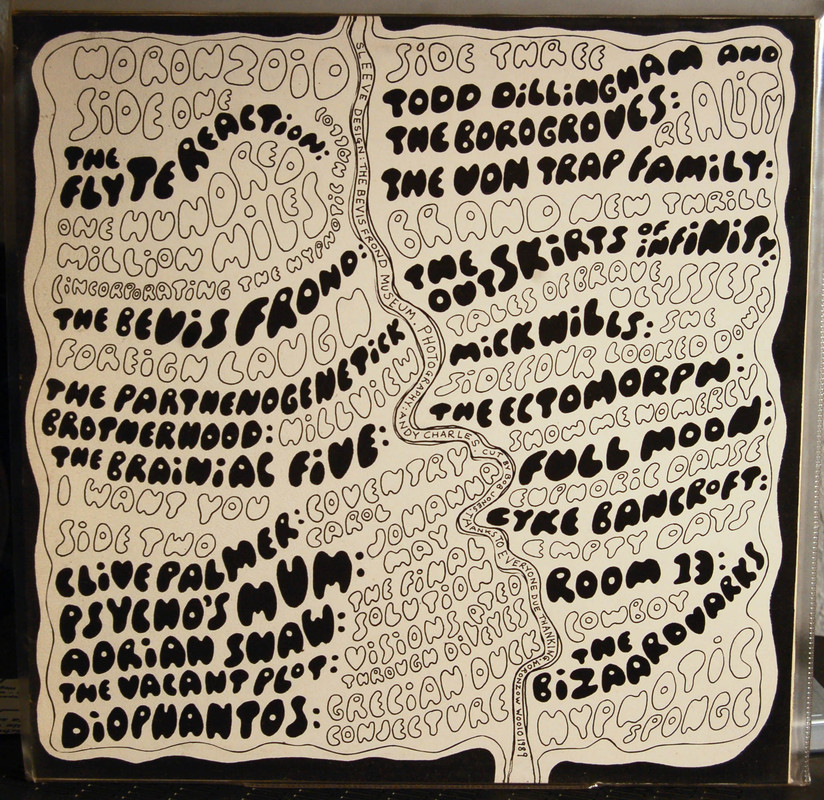 WORONZOID
SIDE ONE
THE
FLYTE REACTION:
ONE HUNDRED
MILLION MILES
(INCORPORATING THE HYPNOTIC
THE BEVIS FROND:
FOREIGN LAUGH
THE PARTHENOGENETICK
BROTHERHOOD: HILLVIEW
THE BRAINIAC FIVE:
I WANT YOU
SIDE TWO
CLIVE PALMER: COVENTRY
CAROL
PSYCHO'S MUM: JOHANNO
MAY
ADRIAN SHAW: THE FINAL
SOLUTION
THE VACANT PLOT: VISIONS
THROUGH EYES
DIOPHANTOS: GRECIAN DUCK
CONJECTURE
SLEEVE DESIGN: THE BEVIS FROND MUSEUM. PHOTOGRAPHY: ANDY CHARLES CUT BY BOB JONES. THANKS TO EVERYONE DUE THANKING. WORONZOW WOO10 1989
SIDE THREE
TODD DILLINGHAM AND
THE BOROGROVES: REALITY
THE VON TRAP FAMILY:
BRAND NEW THRILL
THE
OUTSKIRTS OF INFINITY:
TALES OF BRAVE ULYSSES
MICK WILLS: SHE
SIDE FOUR LOOKED DOWN
THE ECTOMORPH:
SHOW ME NO MERCY
FULL MOON:
EUPHORIC DANSE
CYKE BANCROFT:
EMPTY DAYS
ROOM 13:
COWBOY
THE
BIZAARDVARKS
HYPNOTIC
SPONGE